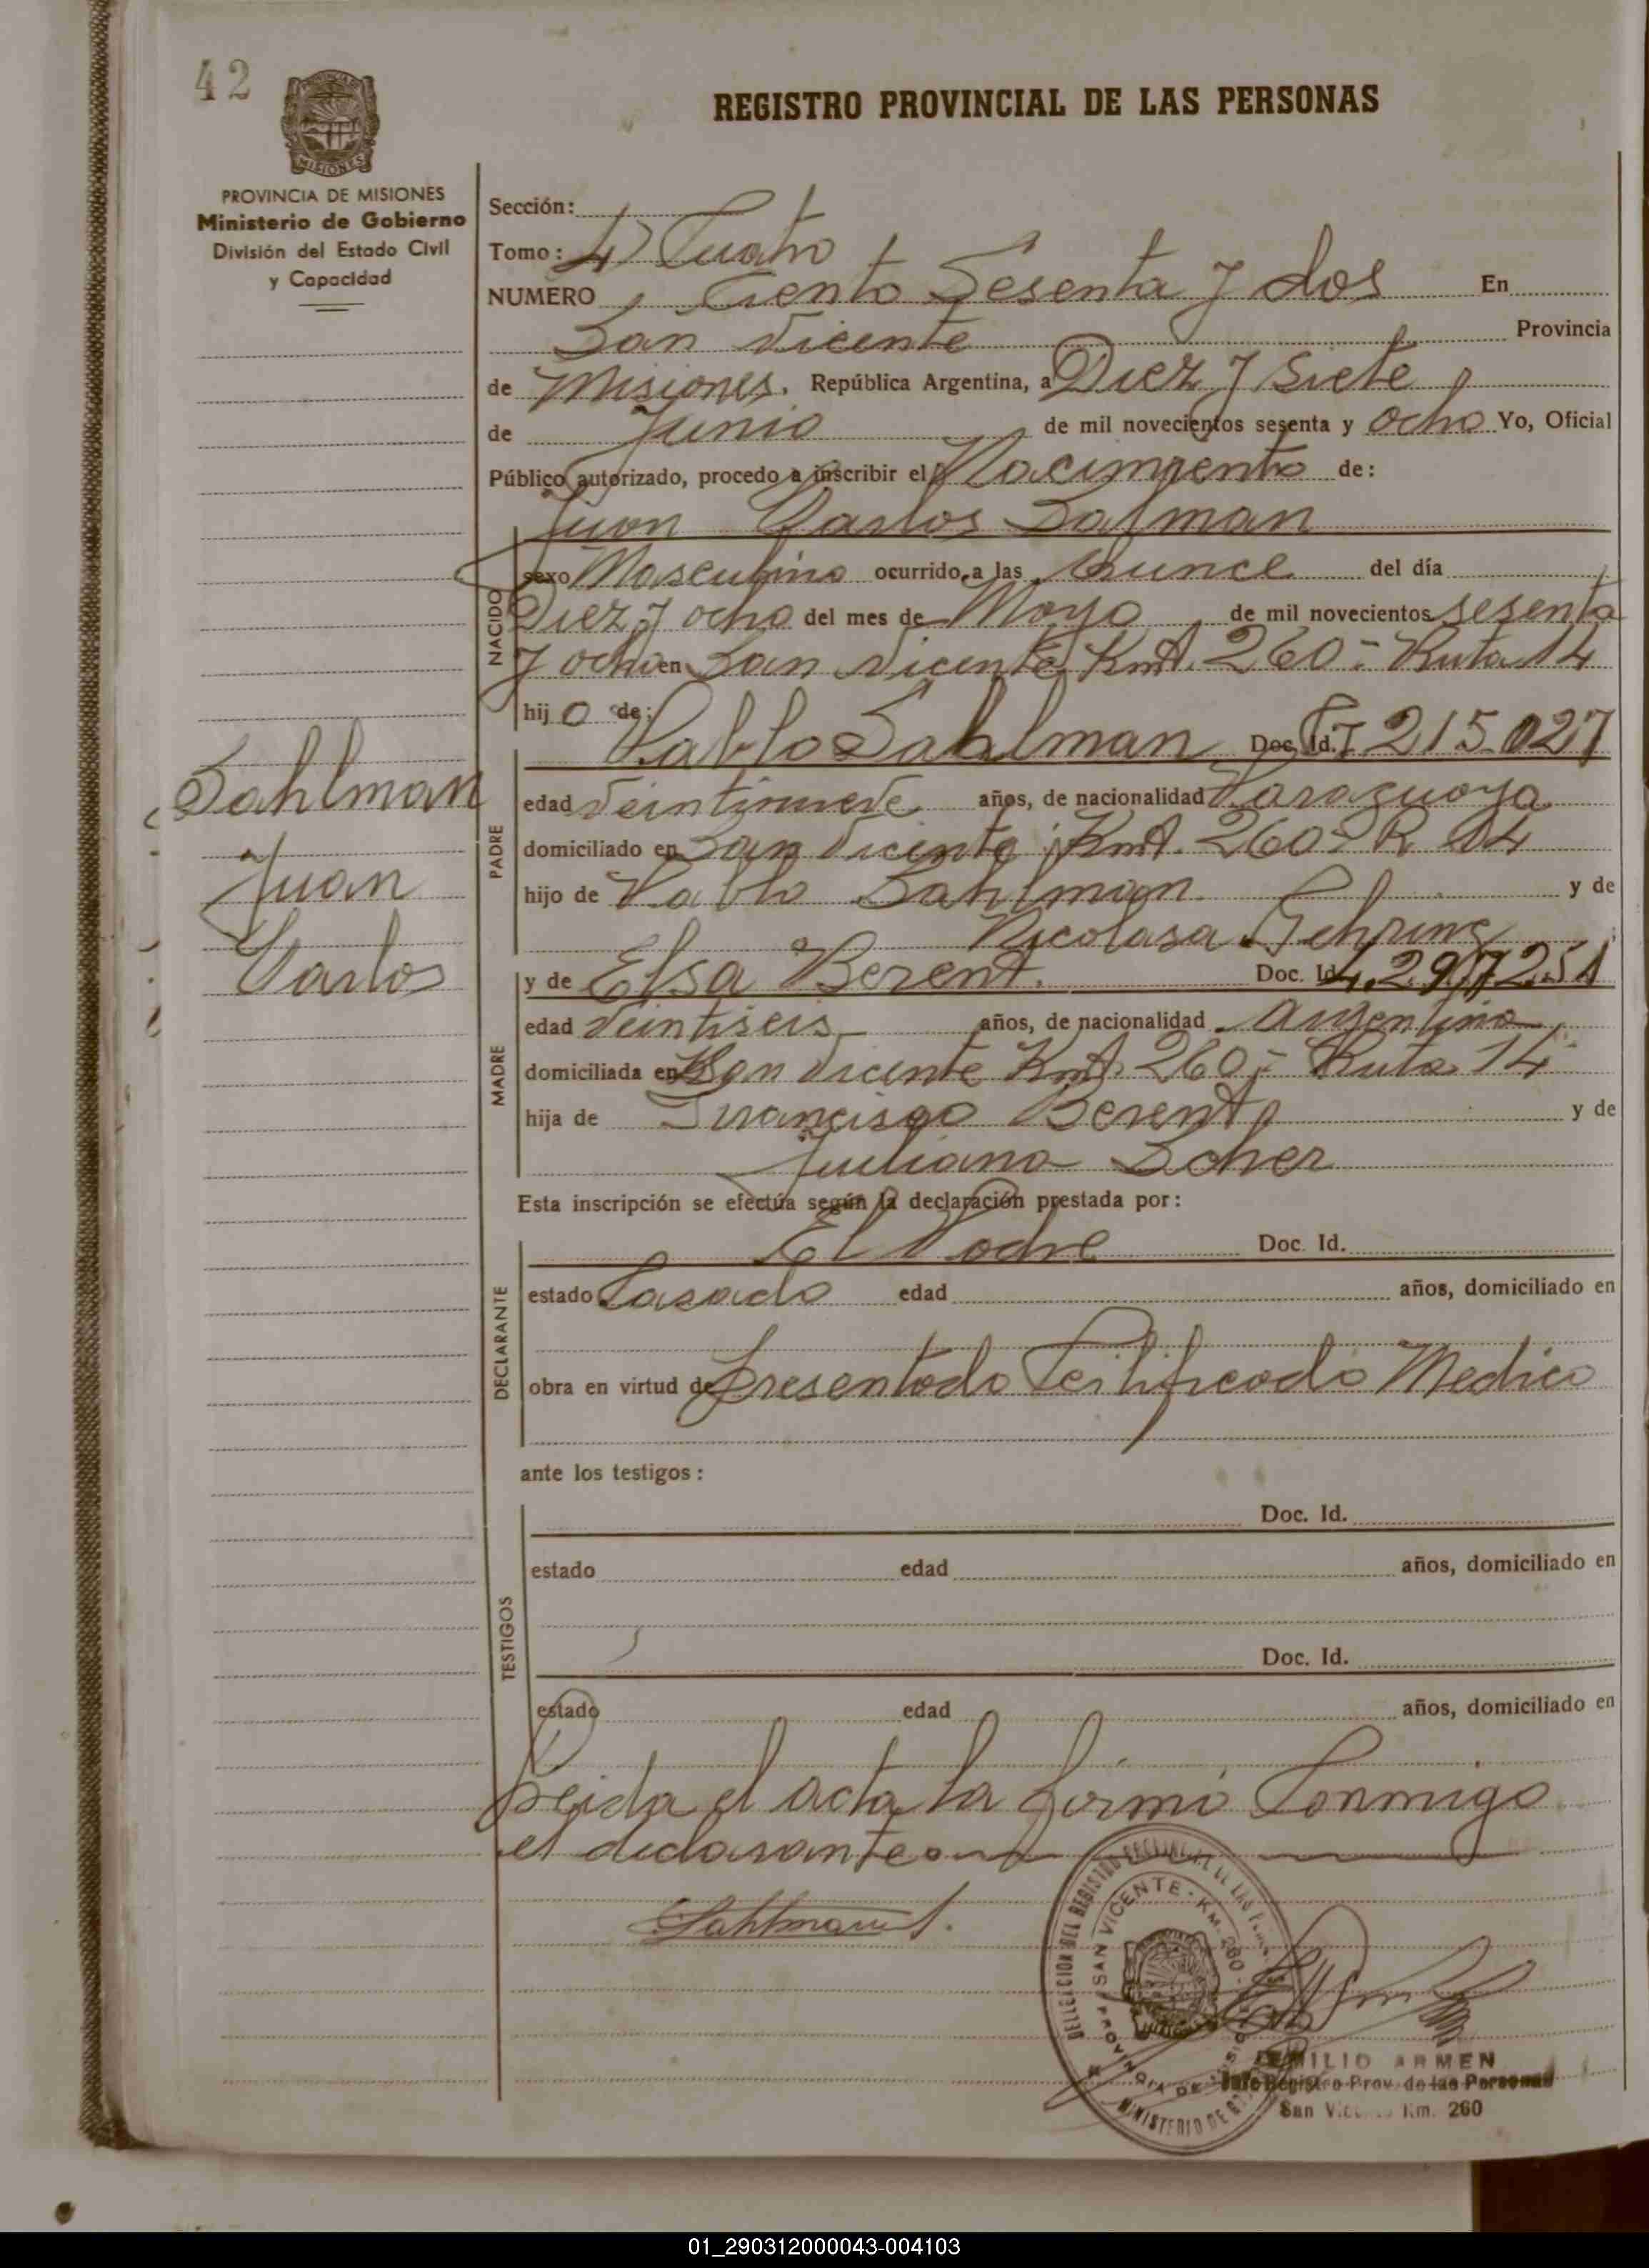 42
PROVINCIA DE MISIONES
Ministerio de Gobierno
División del Estado Civil
y Capacidad
REGISTRO PROVINCIAL DE LAS PERSONAS
Sección:
Tomo: 4) Cuarto
NUMERO Ciento Sesenta y dos En
San Vicente Provincia
de Misiones. República Argentina, a Diez y Siete
de Junio de mil novecientos sesenta y ocho Yo, Oficial
Público autorizado, procedo a inscribir el Nacimiento de:
Juan Carlos Salman
NACIDO
sexo Masculino ocurrido a las Quince del día
Diez y ocho del mes de Mayo de mil novecientos sesenta
y ocho en San Vicente Kmt. 260 - Ruta 14
hijo de:
Sahlman
Juan
Carlos
PADRE
Pablo Sahlman Doc. Id. 215.027
edad Veintinueve años, de nacionalidad Paraguaya
domiciliado en San Vicente Kmt. 260 - R 14
hijo de Pablo Sahlman y de
Nicolasa Gehring
MADRE
y de Elsa Berent. Doc. Id. 4.297.251
edad Veintiseis años, de nacionalidad Argentina
domiciliada en San Vicente Kmt. 260 - Ruta 14
hija de Francisco Berent y de
Juliana Scher
Esta inscripción se efectúa según la declaración prestada por:
DECLARANTE
El Padre Doc. Id.
estado Casado edad años, domiciliado en
obra en virtud de Presentado Certificado Medico
ante los testigos:
TESTIGOS
Doc. Id.
estado edad años, domiciliado en
Doc. Id.
estado edad años, domiciliado en
Leida el acta la firmó Conmigo
el declarante
Sahlmann
SAN VICENTE - KM. 260
EMILIO ARMEN
Jefe Registro Prov. de las Personas
San Vicente Km. 260
01_290312000043-004103